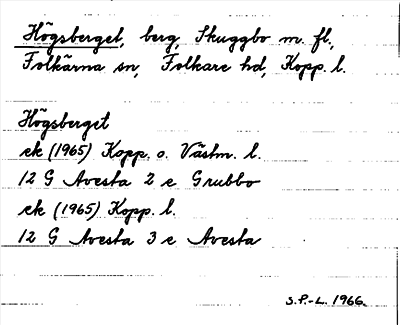 Högsberget, berg, Skuggbo m. fl.,
Folkärna sn, Folkare hd, Kopp. l.
Högsberget
ek (1965) Kopp. o. Västm. l.
12 G Avesta 2 e Grubbo
ek (1965) Kopp. l.
12 G Avesta 3 e Avesta
S.P.-L. 1966.